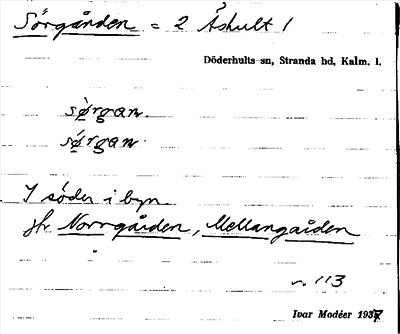 Sörgården = 2 Åshult 1
Döderhults sn, Stranda hd, Kalm. l.
sø̀rgan.
sǿrgan.
I söder i byn
jfr Norrgården, Mellangården
n. 113
Ivar Modéer 1937